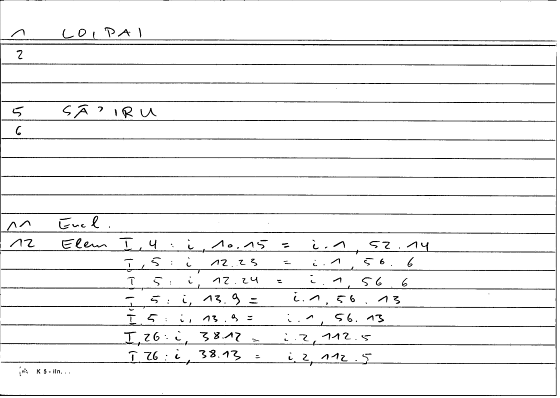 1 LOIPAI
2
5 SĀʾIRU
6
11 Eucl.
12 Elem I, 4 : i, 10.15 = i.1, 52.14
I, 5 : i, 12.23 = i.1, 56.6
I, 5 : i, 12.24 = i.1, 56.6
I, 5 : i, 13.9 = i.1, 56.13
I, 5 : i, 13.9 = i.1, 56.13
I, 26 : i, 38.12 = i.2, 112.5
I, 26 : i, 38.13 = i.2, 112.5